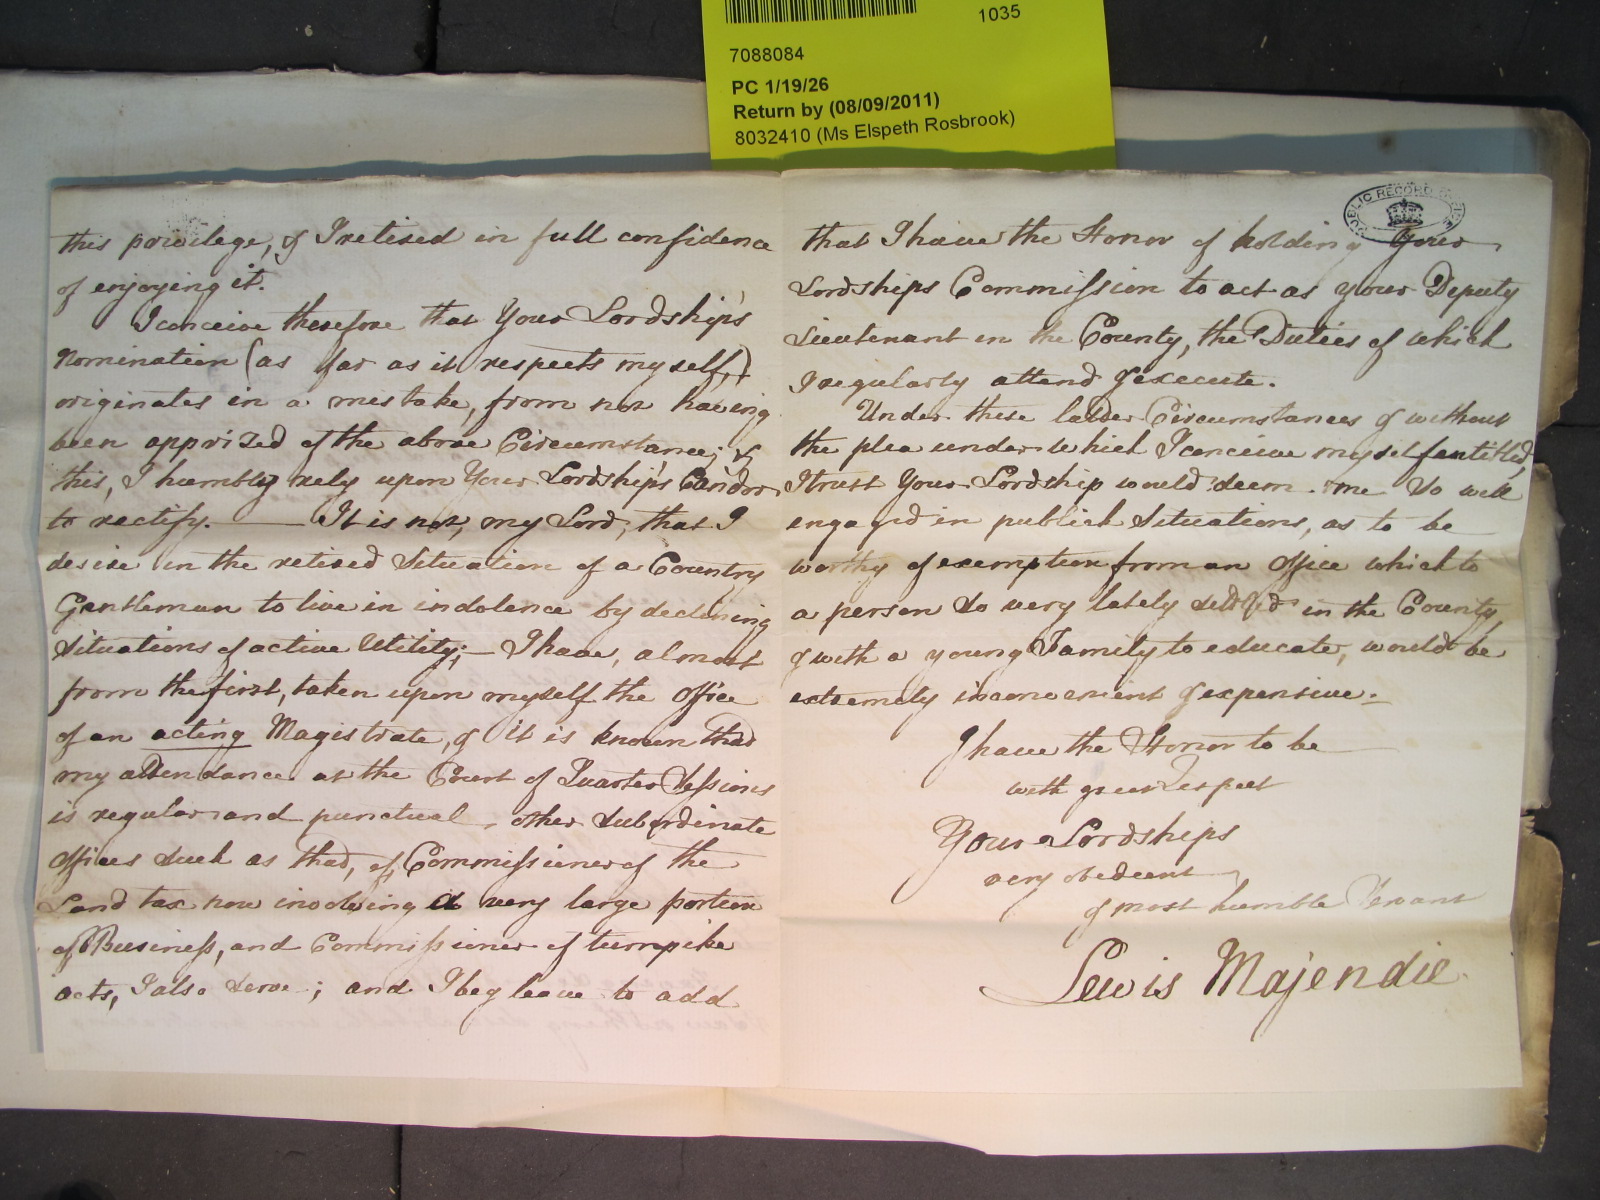 1035
7088084
PC 1/19/26
Return by (08/09/2011)
8032410 (Ms Elspeth Rosbrook)
PUBLIC RECORD OFFICE
this privilege, & I retired in full confidence
of enjoying it.
I conceive therefore that Your Lordship's
Nomination (as far as it respects myself,)
originates in a mistake, from not having
been apprized of the above Circumstance; &
this, I humbly rely upon Your Lordship's Candor
to rectify. — It is not, my Lord, that I
desire in the retired Situation of a Country
Gentleman to live in indolence by declining
Situations of active Utility; — I have, almost
from the first, taken upon myself the office
of an acting Magistrate, & it is known that
my attendance at the Court of Quarter Sessions
is regular and punctual, other Subordinate
offices such as that, of Commissioner of the
Land tax now involving a very large portion
of Business, and Commissioner of turnpike
acts, I also serve; and I beg leave to add
that I have the Honor of holding Your
Lordships Commission to act as your Deputy
Lieutenant in the County, the Duties of which
I regularly attend & execute.
Under these latter Circumstances & without
the plea under which I conceive myself entitled,
I trust Your Lordship would deem me so well
engag'd in publick Situations, as to be
worthy of exemption from an office which to
a person so very lately settled in the County,
& with a young Family to educate, would be
extremely inconvenient & expensive. —
I have the Honor to be
with great Respect
Your Lordships
very obedient
& most humble Servant
Lewis Majendie